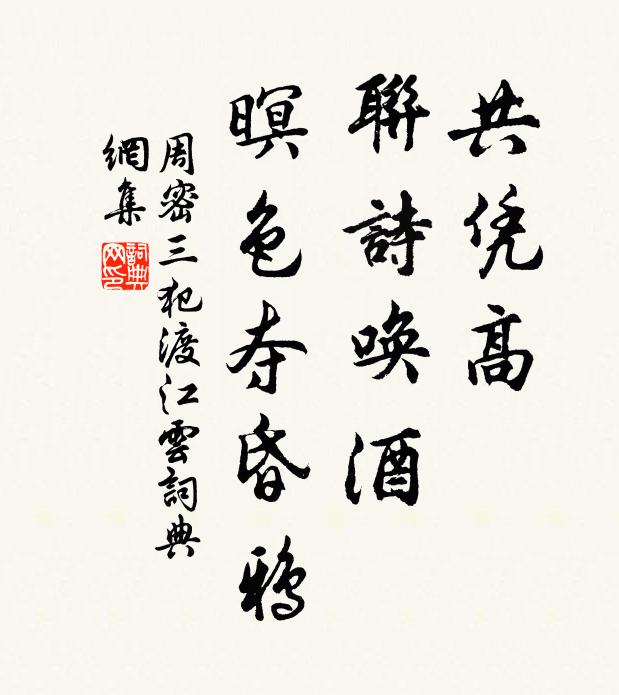 共凭高
聯詩喚酒
暝色夺昏鴉
周密三犯渡江雲詞典
網集
詞典
网印